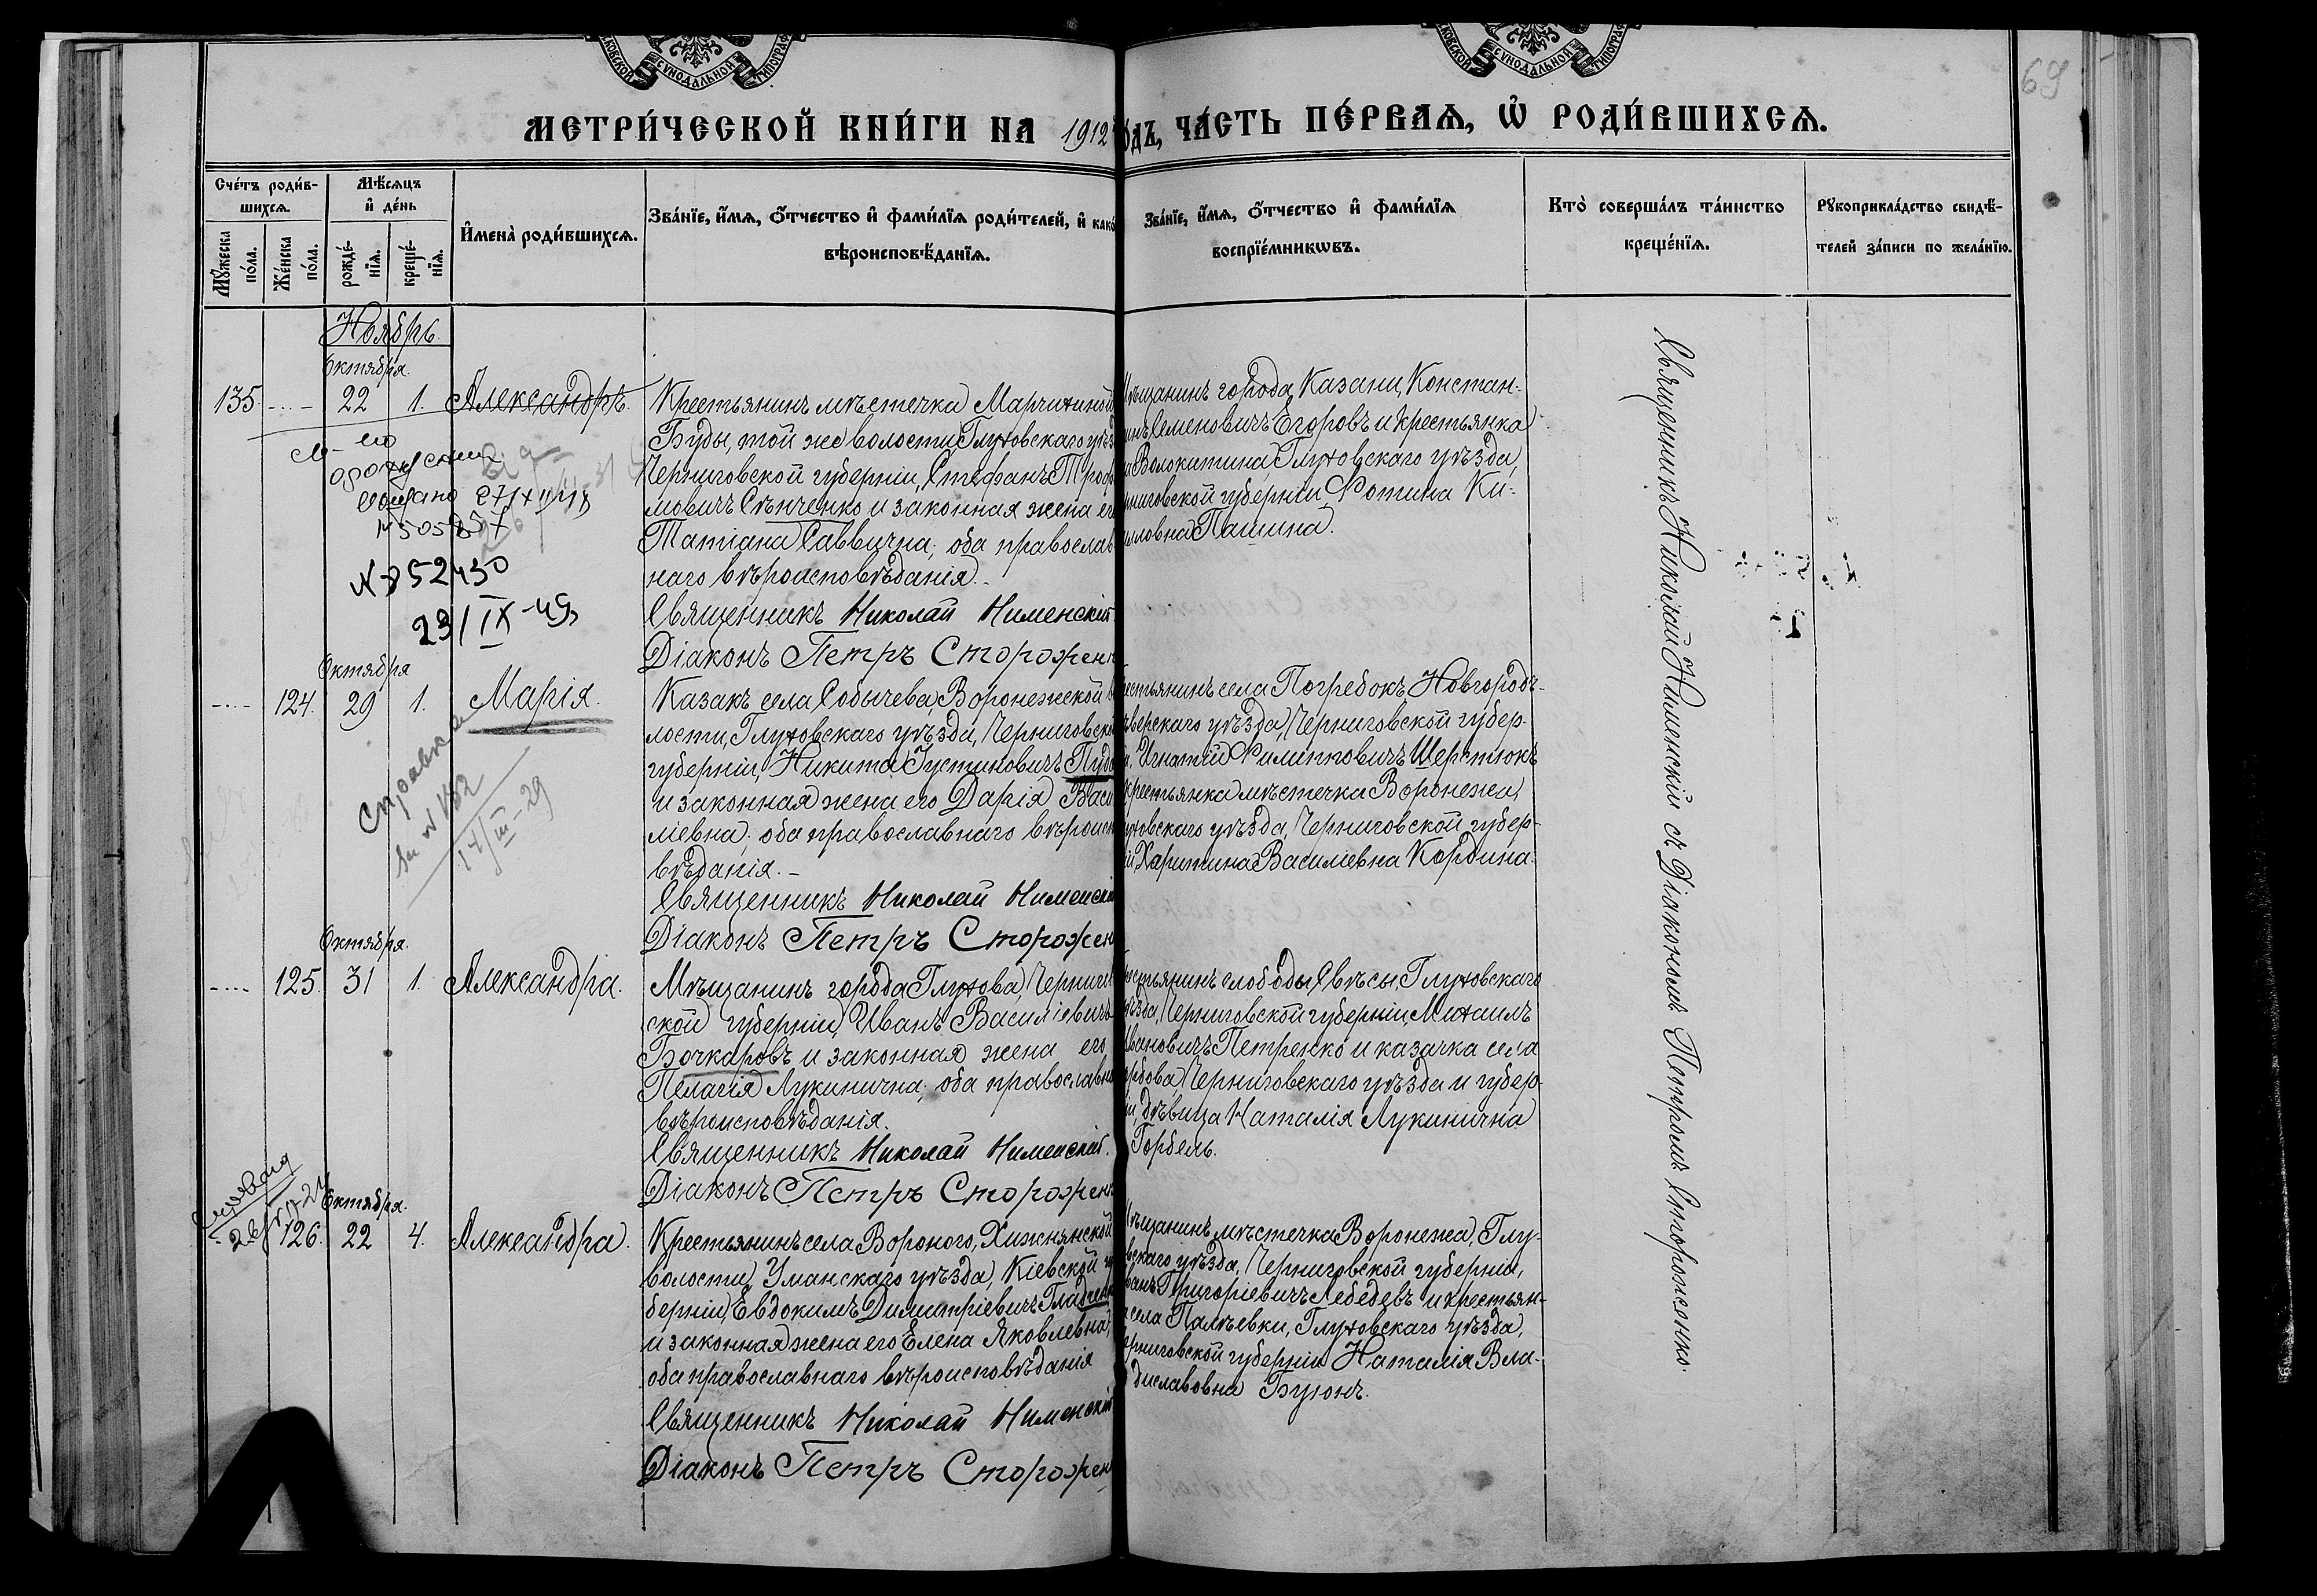 69
МЕТРИ́ЧЕСКОЙ КНИ́ГИ НА 1912 ОДЪ, ЧА́СТЬ ПЕ́РВАЯ, Ѽ РОДИ́ВШИХСѦ.
Сче́тъ роди́в-
шихсѧ.
Мꙋ́жеска
по́ла.
Же́нска
по́ла.
Мѣ́сѧцъ
и҆ де́нь
рожде́-
нїѧ.
креще́-
нїѧ.
И҆мена̀ роди́вшихсѧ.
Зва́нїе, и҆́мѧ, ѻ҆́тчество и҆ фами́лїѧ роди́телей, и҆ како
вѣроисповѣ́данїѧ.
Зва́нїе, и҆́мѧ, ѻ҆́тчество и҆ фами́лїѧ
воспрїе́мникѡвъ.
Кто̀ соверша́лъ та́инство
креще́нїѧ.
Рꙋкоприкла́дство свидѣ́-
телей за́писи по жела́нїю.
Ноябрь.
Октября.
135. 22 1. Александръ.
Крестьянинъ мѣстечка Марчихиной
Буды, той же волости, Глуховскаго уѣз
Черниговской губерніи, Стефанъ Троф
мовичъ Сѣнченко и законная жена ег
Татіана Саввична; оба православ
наго вѣроисповѣданія.
Священникъ Николай Нименскій
Діаконъ Петръ Стороженк
ѣщанинъ города Казани, Констан-
инъ Семеновичъ Егоровъ и крестьянка
а Волокитина, Глуховскаго уѣзда,
рниговской губерніи Фотина Ки-
илловна Пашина.
№852430
29/IX-49
Октября
124. 29 1. Марія.
Справка
за №182
14/III-29
Казакъ села Собычева, Воронежской в
лости, Глуховскаго уѣзда, Черниговско
губерніи, Никита Іустиновичъ Пуд
и законная жена его Дарія Васи
ліевна; оба православнаго вѣроисп
вѣданія.-
Священникъ Николай Нименскі
Діаконъ Петръ Сторожен
рестьянинъ села Погребокъ, Новгородъ-
ѣверскаго уѣзда, Черниговской губер-
и, Игнатій Филипповичъ Шерстюкъ
крестьянка мѣстечка Воронежа,
уховскаго уѣзда, Черниговской губер-
іи Харитина Василіевна Кордина.
Октября.
125. 31 1. Александра.
Мѣщанинъ города Глухова, Черниго
ской губерніи, Иванъ Василіевичъ
Бочкаровъ и законная жена его
Пелагія Лукинична; оба православн
вѣроисповѣданія.
Священникъ Николай Нименскій.
Діаконъ Петръ Стороженк
рестьянинъ слободы Свѣсы, Глуховскаго
ѣзда, Черниговской губерніи, Михаилъ
Ивановичъ Петренко и казачка села
орбова, Черниговскаго уѣзда и губер-
іи, дѣвица Наталія Лукинична
Горбель.
Октября.
126. 22 4. Александра.
Крестьянинъ села Вороного, Хижнянской
волости, Уманскаго уѣзда, Кіевской гу
берніи, Евдокимъ Димитріевичъ Гладсен
и законная жена его Елена Яковлевна;
оба православнаго вѣроисповѣданія
Священникъ Николай Нименскій
Діаконъ Петръ Сторожен
ѣщанинъ мѣстечка Воронежа, Глу-
вскаго уѣзда, Черниговской губерніи,
ванъ Григоріевичъ Лебедевъ и крестьян-
села Палѣевки, Глуховскаго уѣзда,
ерниговской губерніи Наталія Вла-
диславовна Бугонъ.
Священникъ Николай Нименскій съ Діакономъ Петромъ Стороженко.